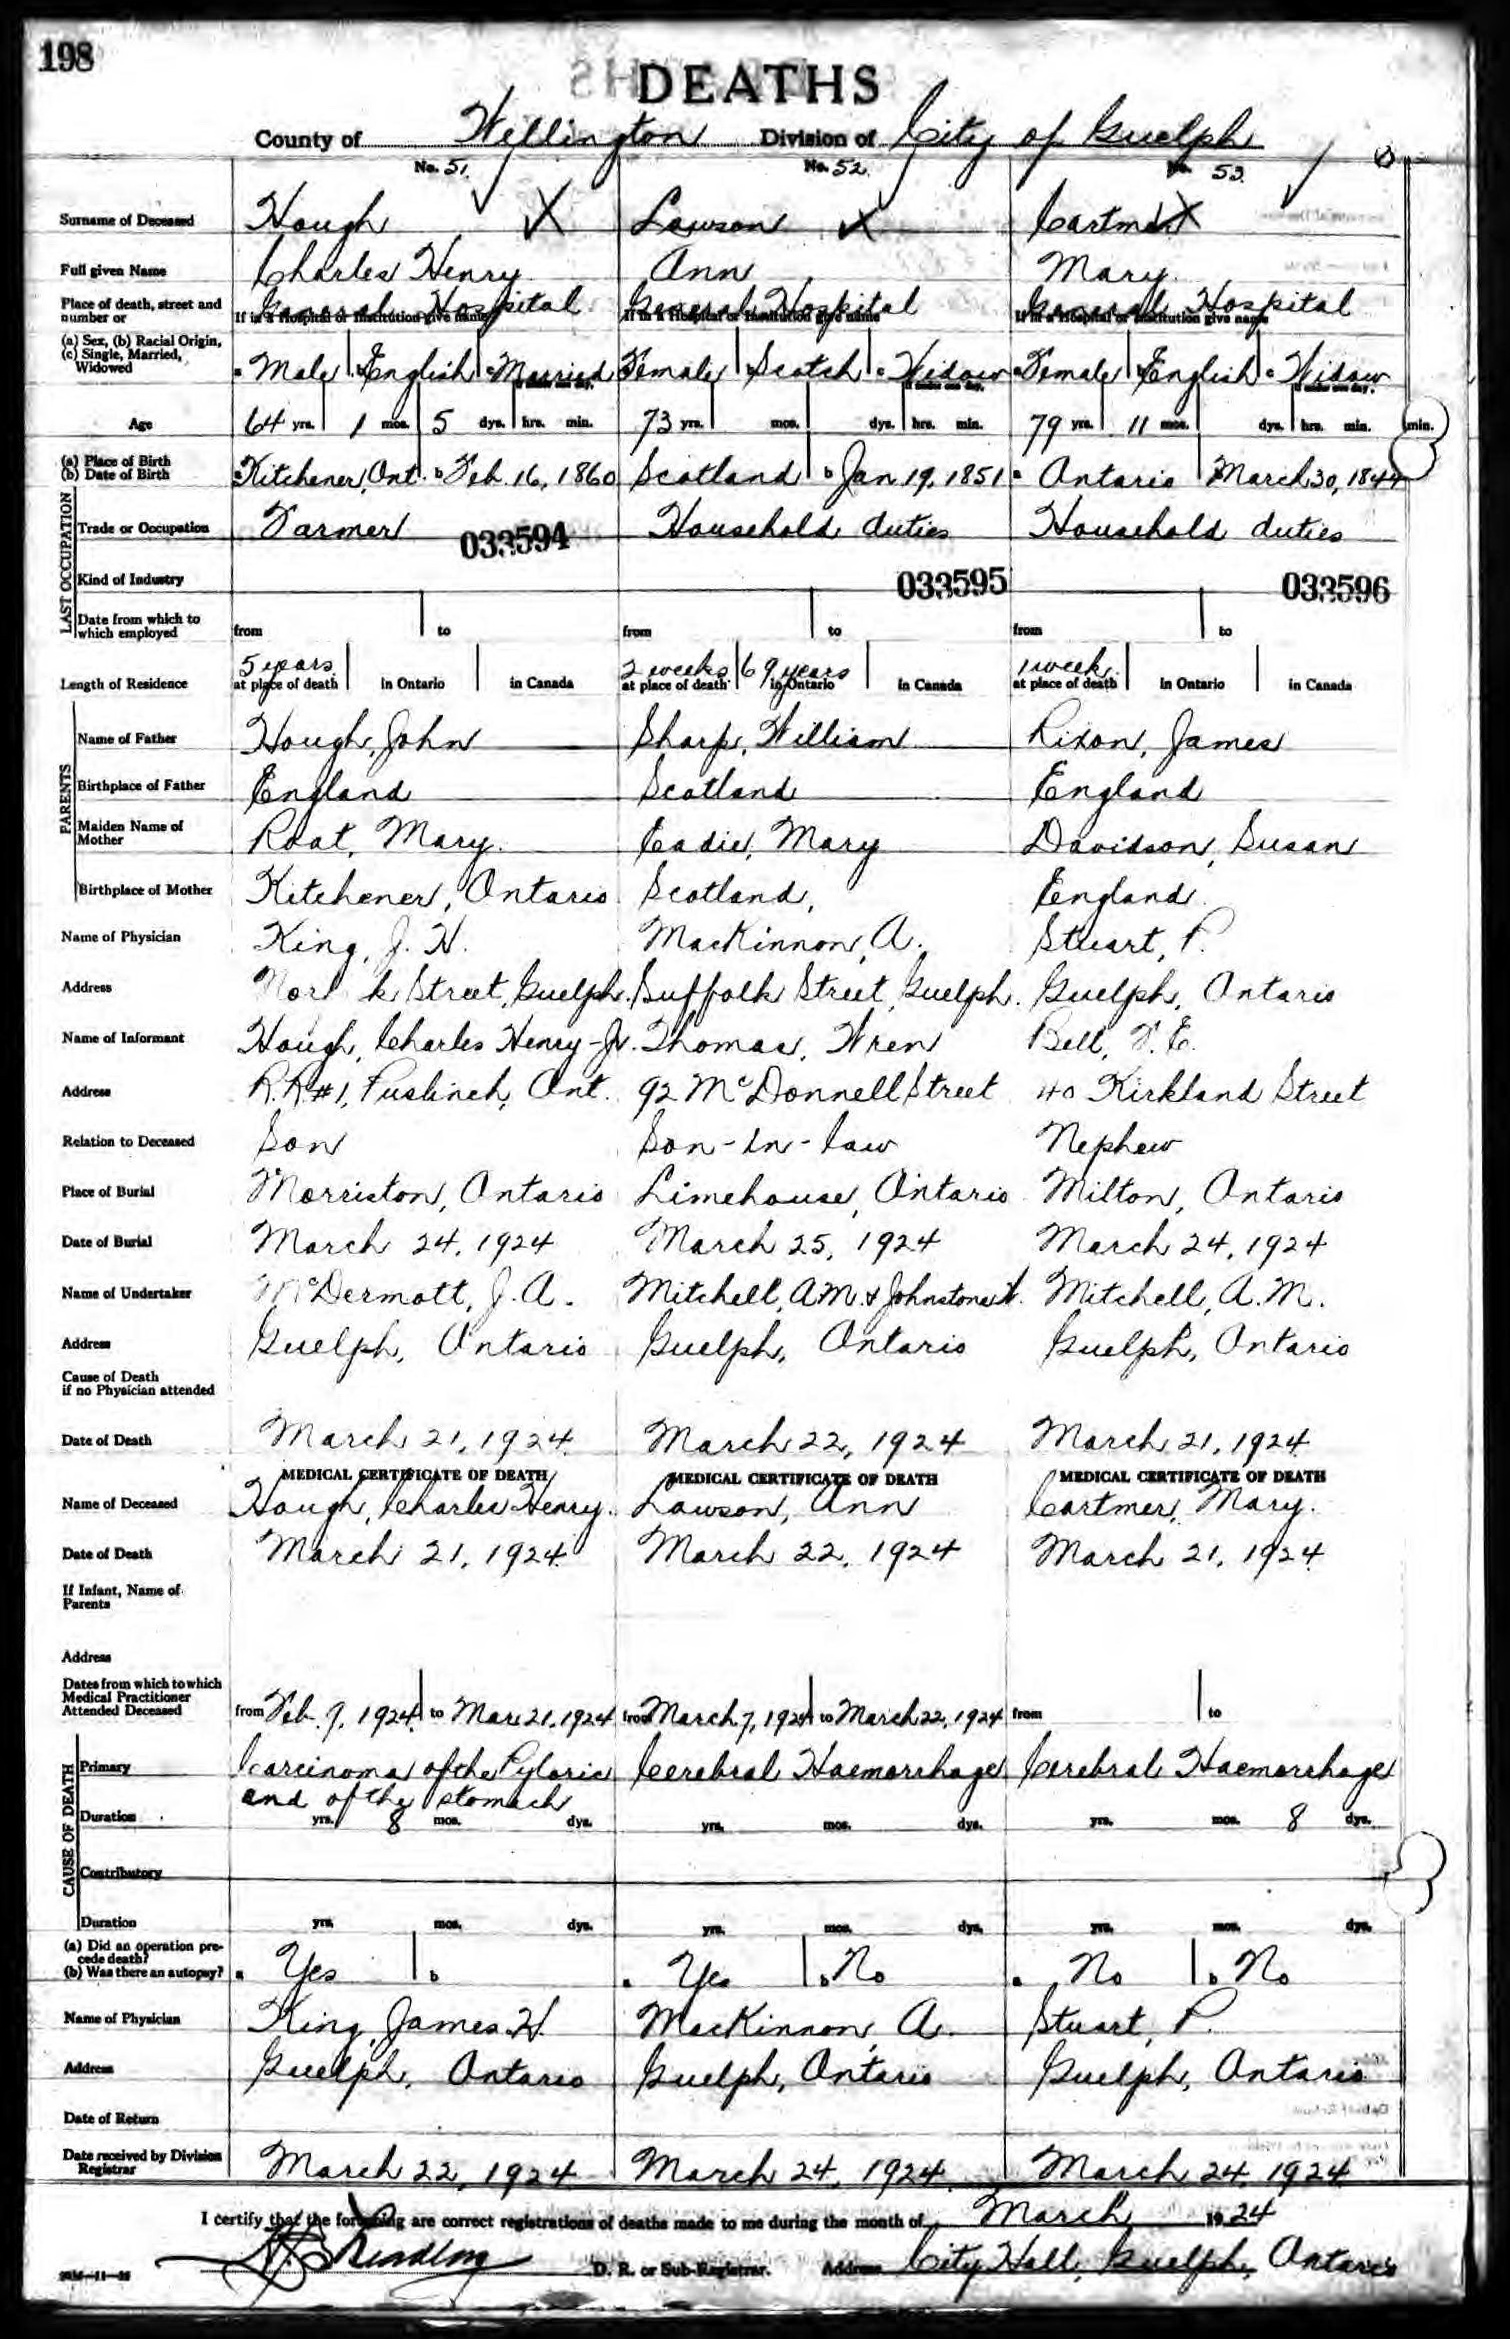 198
DEATHS
County of Wellington Division of City of Guelph
No. 51. No. 52. No. 53.
Surname of Deceased Hough X Lawson X Cartmer X
Full given Name Charles Henry Ann Mary
Place of death, street and number or General Hospital General Hospital General Hospital
If in a Hospital or Institution give name If in a Hospital or Institution give name If in a Hospital or Institution give name
(a) Sex, (b) Racial Origin, (c) Single, Married, Widowed a Male b English c Married Female b Scotch c Widow a Female b English c Widow
Age 64 yrs. 1 mos. 5 dys. hrs. min. 73 yrs. mos. dys. hrs. min. 79 yrs. 11 mos. dys. hrs. min. min.
(a) Place of Birth (b) Date of Birth a Kitchener, Ont. b Feb. 16, 1860 Scotland b Jan 19, 1851 a Ontario March 30, 1844
LAST OCCUPATION
Trade or Occupation Farmer Household duties Household duties
033594
Kind of Industry 033595 033596
Date from which to which employed from to from to from to
5 years 2 weeks 69 years 1 week
Length of Residence at place of death in Ontario in Canada at place of death in Ontario in Canada at place of death in Ontario in Canada
PARENTS
Name of Father Hough, John Sharp, William Rixon, James
Birthplace of Father England Scotland England
Maiden Name of Mother Roat, Mary. Eadie, Mary Davidson, Susan
Birthplace of Mother Kitchener, Ontario Scotland, England.
Name of Physician King, J. H. MacKinnon, A. Stuart, P.
Address Street, Guelph. Suffolk Street, Guelph. Guelph, Ontario
Name of Informant Hough, Charles Henry-Jr. Thomas, Wren Bell, F. E.
Address R.R #1, Puslinch, Ont. 92 McDonnell Street 40 Kirkland Street
Relation to Deceased Son Son-in-law Nephew
Place of Burial Morriston, Ontario Limehouse, Ontario Milton, Ontario
Date of Burial March 24, 1924 March 25, 1924 March 24, 1924
Name of Undertaker McDermott, J. A. Mitchell, A.M. & Johnstone Mitchell, A. M.
Address Guelph, Ontario Guelph, Ontario Guelph, Ontario
Cause of Death if no Physician attended
Date of Death March 21, 1924. March 22, 1924 March 21, 1924.
MEDICAL CERTIFICATE OF DEATH MEDICAL CERTIFICATE OF DEATH MEDICAL CERTIFICATE OF DEATH
Name of Deceased Hough, Charles Henry. Lawson, Ann Cartmer, Mary.
Date of Death March 21, 1924. March 22, 1924 March 21, 1924.
If Infant, Name of Parents
Address
Dates from which to which Medical Practitioner Attended Deceased from Feb. 9, 1924 to Mar. 21, 1924 from March 7, 1924 to March 22, 1924 from to
CAUSE OF DEATH
Primary Carcinoma of the Pyloric Cerebral Haemorrhage Cerebral Haemorrhage
end of the stomach
Duration yrs. 8 mos. dys. yrs. mos. dys. yrs. mos. 8 dys.
Contributory
Duration yrs. mos. dys. yrs. mos. dys. yrs. mos. dys.
(a) Did an operation precede death? (b) Was there an autopsy? a Yes b a Yes b No a No b No
Name of Physician King, James H. MacKinnon, A. Stuart, P.
Address Guelph, Ontario Guelph, Ontario Guelph, Ontario
Date of Return
Date received by Division Registrar March 22, 1924 March 24, 1924 March 24, 1924
I certify that the foregoing are correct registrations of deaths made to me during the month of March 1924
D. R. or Sub-Registrar. Address City Hall, Guelph, Ontario